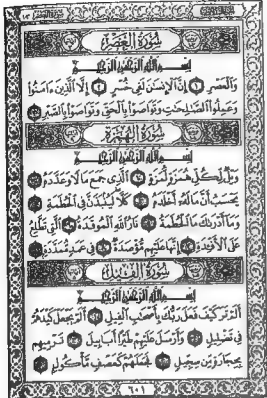 سُورَةُ العَصْرِ
بِسْمِ اللَّهِ الرَّحْمَٰنِ الرَّحِيمِ
وَالْعَصْرِ ١ إِنَّ الْإِنسَانَ لَفِي خُسْرٍ ٢ إِلَّا الَّذِينَ ءَامَنُوا
وَعَمِلُوا الصَّالِحَاتِ وَتَوَاصَوْا بِالْحَقِّ وَتَوَاصَوْا بِالصَّبْرِ ٣
سُورَةُ الهُمَزَةِ
بِسْمِ اللَّهِ الرَّحْمَٰنِ الرَّحِيمِ
وَيْلٌ لِّكُلِّ هُمَزَةٍ لُّمَزَةٍ ١ الَّذِي جَمَعَ مَالًا وَعَدَّدَهُ ٢
يَحْسَبُ أَنَّ مَالَهُ أَخْلَدَهُ ٣ كَلَّا لَيُنبَذَنَّ فِي الْحُطَمَةِ ٤
وَمَا أَدْرَاكَ مَا الْحُطَمَةُ ٥ نَارُ اللَّهِ الْمُوقَدَةُ ٦ الَّتِي تَطَّلِعُ
عَلَى الْأَفْئِدَةِ ٧ إِنَّهَا عَلَيْهِم مُّؤْصَدَةٌ ٨ فِي عَمَدٍ مُّمَدَّدَةٍ ٩
سُورَةُ الفِيلِ
بِسْمِ اللَّهِ الرَّحْمَٰنِ الرَّحِيمِ
أَلَمْ تَرَ كَيْفَ فَعَلَ رَبُّكَ بِأَصْحَابِ الْفِيلِ ١ أَلَمْ يَجْعَلْ كَيْدَهُمْ
فِي تَضْلِيلٍ ٢ وَأَرْسَلَ عَلَيْهِمْ طَيْرًا أَبَابِيلَ ٣ تَرْمِيهِم
بِحِجَارَةٍ مِّن سِجِّيلٍ ٤ فَجَعَلَهُمْ كَعَصْفٍ مَّأْكُولٍ ٥
٦٠١